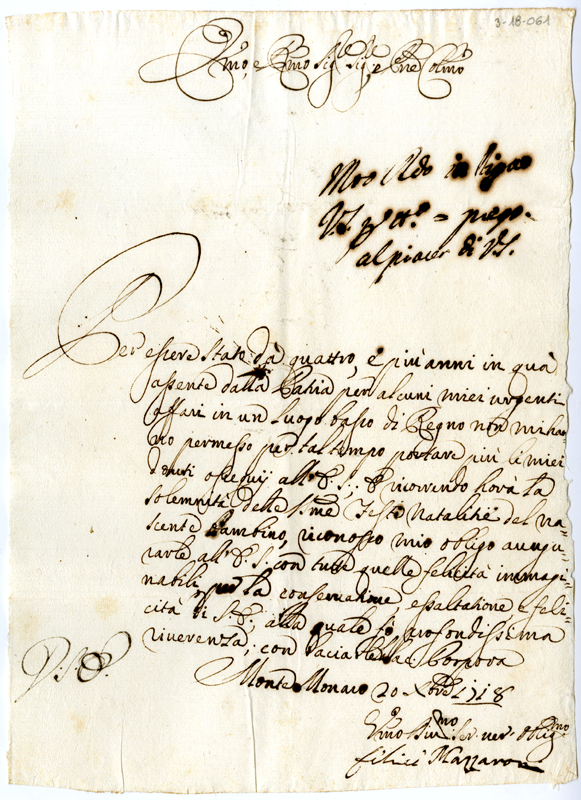 3-18-061
Emo, e Rmo Sigre Sigre, e Prne Colmo
al piacer di V.S.
Per essere stato da quattro, e più anni in quà
assente dalla Patria per alcuni miei urgenti
affari in un luogo basso di Regno non mi han=
no permesso per tal tempo portare più li miei
dovuti ossequij all'E. S.; E ricorrendo horà la
solennità delle sme Feste Natalitie del na=
scente Bambino, riconosco mio obligo augu=
rarle all'E. S. con tutte quelle felicità immagi=
nabili per la conservatione, essaltatione e feli=
cità di S. E., alla quale fò profondissima
riverenza, con baciarle la S. Porpora
Monte Monaco 20 Xbre 1718
D. S. E.
Vmo Dmo Ser. ver obligmo
Felice Mazzaron